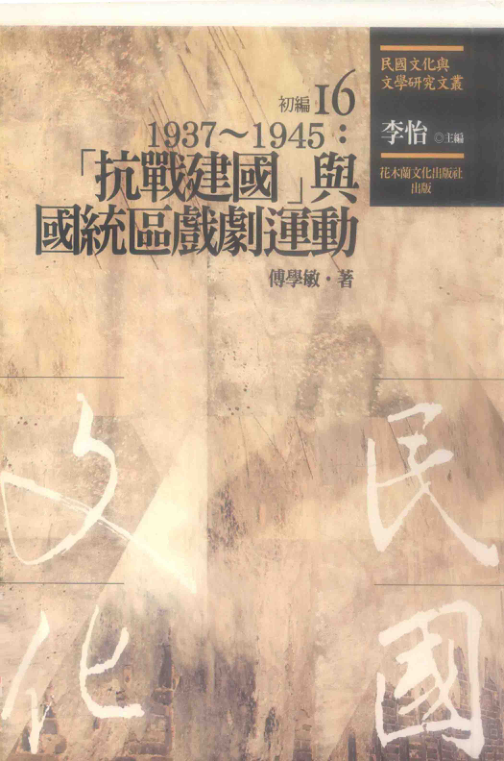 民國文化與
文學研究文叢
李怡◎主編
花木蘭文化出版社
出版
初編16
1937～1945：
「抗戰建國」與
國統區戲劇運動
傅學敏・著
民國
文化